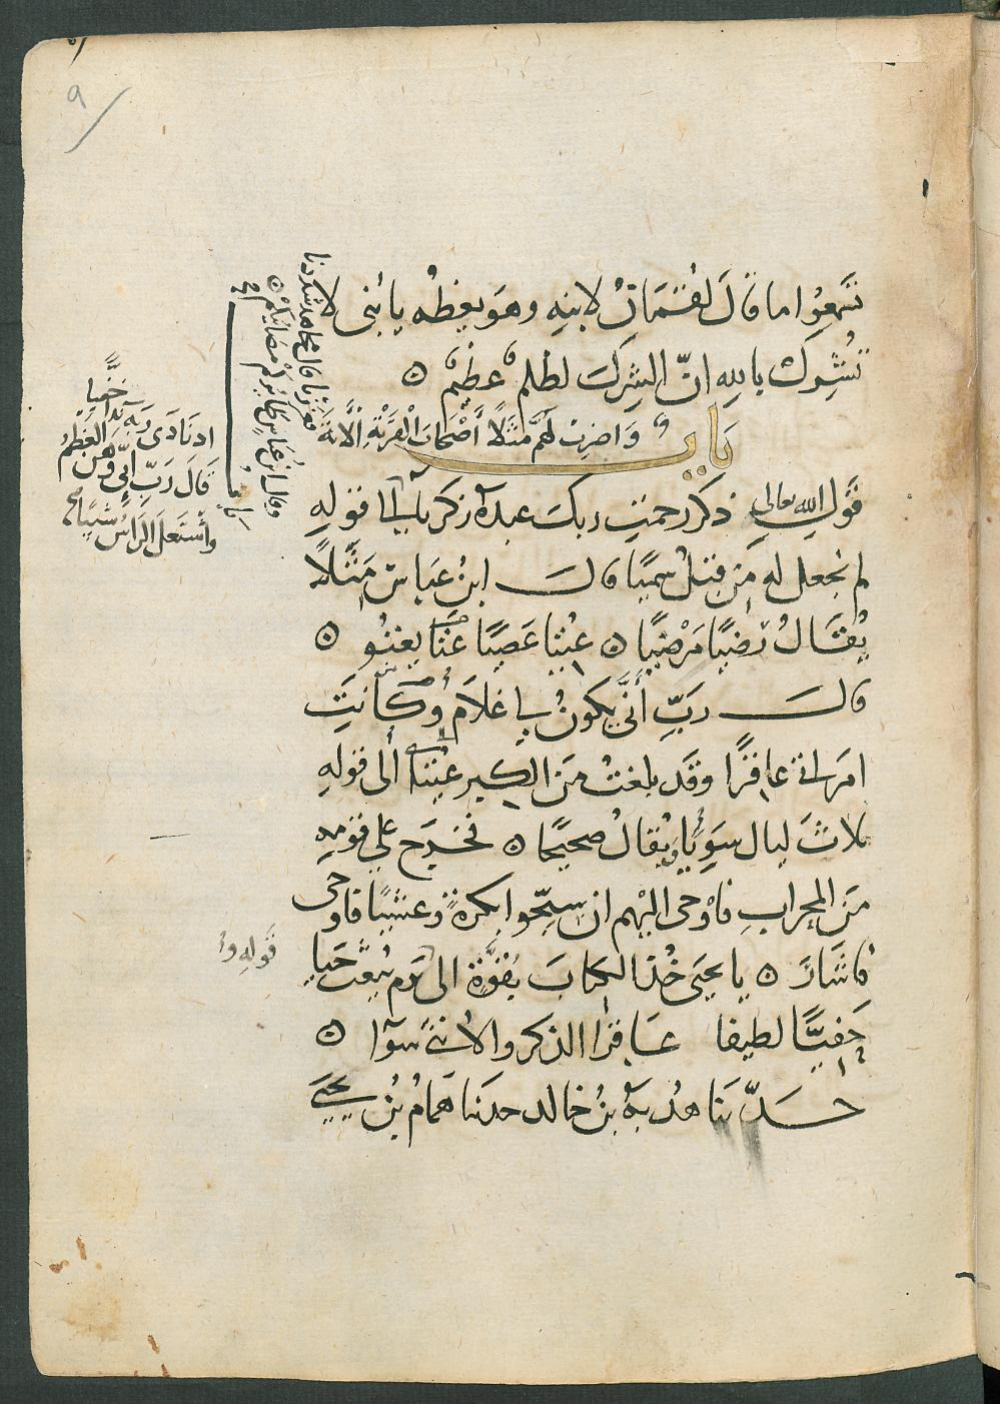 تسمعوا ما قال لقمان لابنه وهو يعظه يا بنى لا
تشرك بالله ان الشرك لظلم عظيم ه
باب واضرب لهم مثلا أصحاب القرية الآية
قول الله تعالى ذكر رحمت ربك عبده زكريا الى قوله
لم نجعل له من قبل سميا قال ابن عباس مثلا
يقال رضيا مرضيا ه عتيا عصيا عتا يعتو ه
قال رب أنى يكون لي غلام وكانت
امراتي عاقرا وقد بلغت من الكبر عتيا الى قوله
ثلاث ليال سويا ويقال صحيحا ه فخرج على قومه
من المحراب فأوحى اليهم ان سبحوا بكرة وعشيا فاوحى
فاشار ه يا يحيى خذ الكتاب بقوة الى يوم يبعث حيا
حفيا لطيفا عاقرا الذكر والانثى سوآ ه
حدثنا هدبة بن خالد حدثنا همام بن يحيى
فعززنا قال مجاهد شددنا
وقال ابن عباس طائركم مصائبكم ه
باب
اذ نادى ربه ندآ خفيا
قال رب اني وهن العظم
واشتعل الراس شيبا
قوله
٩